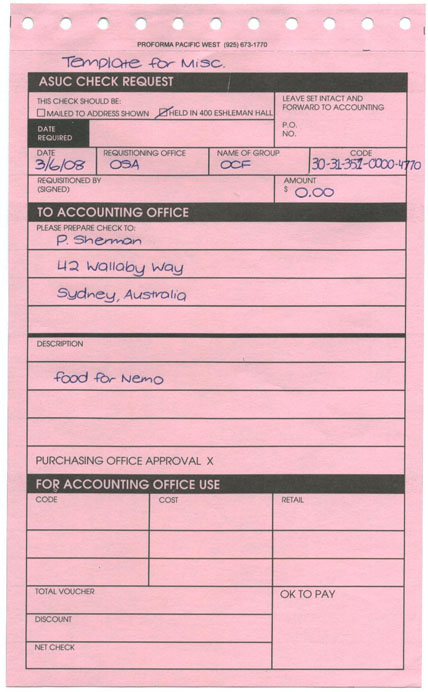 PROFORMA PACIFIC WEST (925) 673-1770
Template for Misc.
ASUC CHECK REQUEST
THIS CHECK SHOULD BE:
MAILED TO ADDRESS SHOWN HELD IN 400 ESHLEMAN HALL
LEAVE SET INTACT AND
FORWARD TO ACCOUNTING
DATE
REQUIRED
P.O.
NO.
DATE REQUISTIONING OFFICE NAME OF GROUP CODE
3/6/08 OSA OCF 30-31-351-0000-4770
REQUISITIONED BY
(SIGNED)
AMOUNT
$ 0.00
TO ACCOUNTING OFFICE
PLEASE PREPARE CHECK TO:
P. Sherman
42 Wallaby Way
Sydney, Australia
DESCRIPTION
food for Nemo
PURCHASING OFFICE APPROVAL X
FOR ACCOUNTING OFFICE USE
CODE COST RETAIL
TOTAL VOUCHER
OK TO PAY
DISCOUNT
NET CHECK